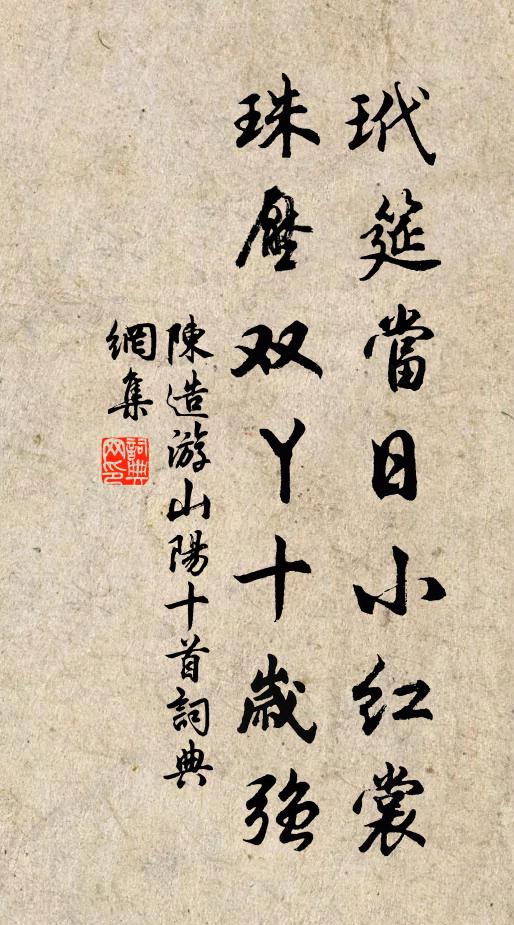 玳筵當日小紅裳
珠壓双丫十歲強
陳造游山陽十首詞典
網集
詞典網印